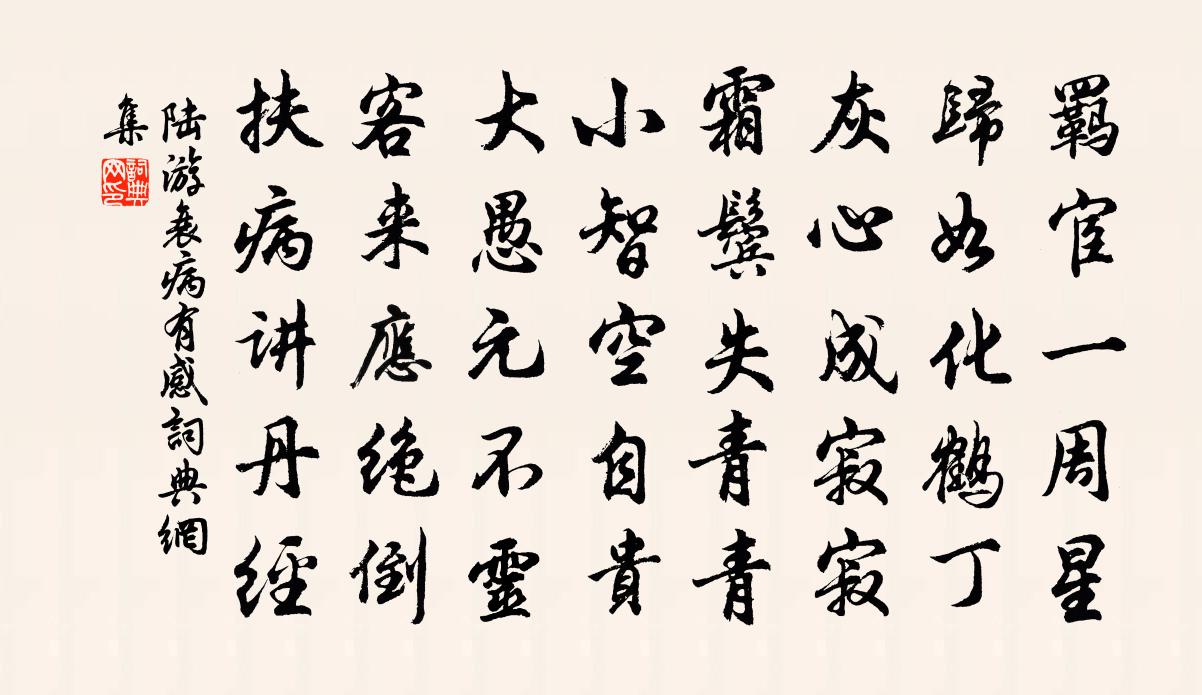 羈宦一周星
歸如化鶴丁
灰心成寂寂
霜鬓失青青
小智空自貴
大愚元不靈
客来應绝倒
扶病讲丹經
陆游衰病有感詞典網
集
詞典
网印